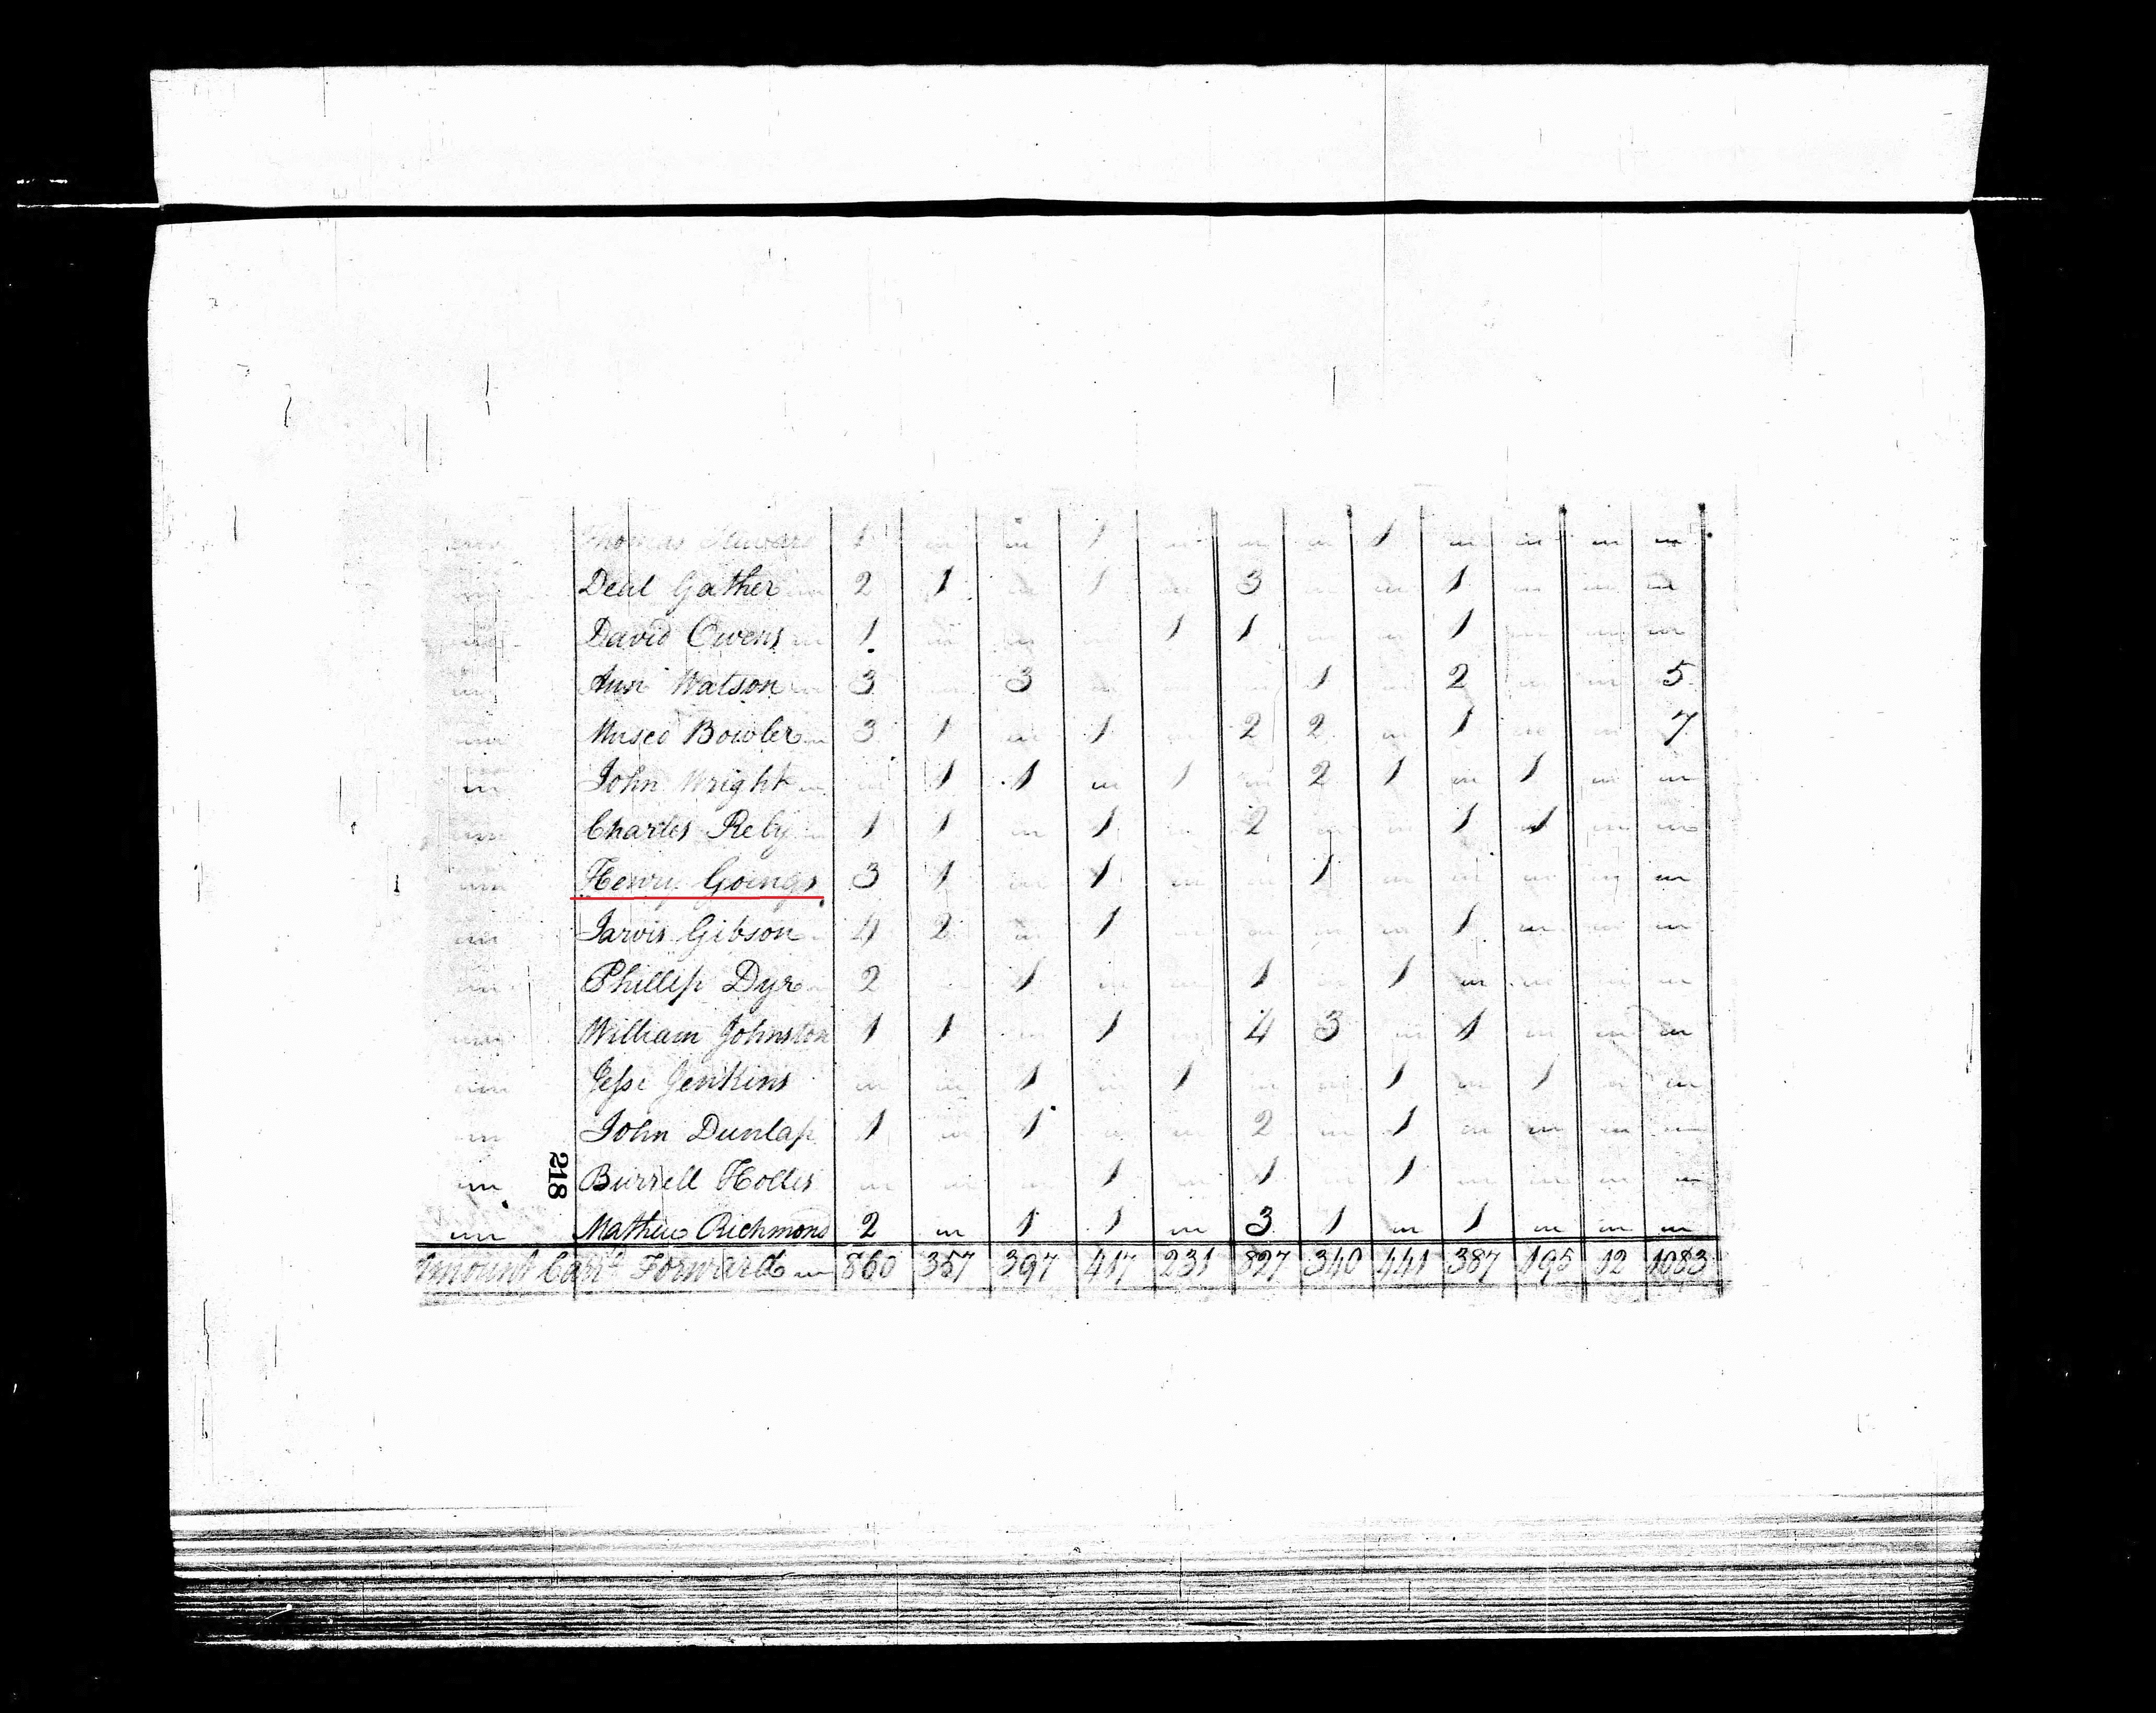 Thomas 1 m m 1 m m m 1 m m m m
Deal Gather m 2 1 m 1 m 3 m m 1 m m m
David Owens m 1 m m m 1 1 m m 1 m m m
Ann Watson m 3 m 3 m m m 1 m 2 m m 5
Museo Bowler m 3 1 m 1 m 2 2 m 1 m m 7
John Wright m m 1 1 m 1 m 2 1 m 1 m m
Charles Reby m 1 1 m 1 m 2 m m 1 1 m m
Henry Goings 3 1 m 1 m m 1 m m m m m
Jarvis Gibson 4 2 m 1 m m m m 1 m m m
Phillip Dyr m 2 m 1 m m 1 m 1 m m m m
William Johnston 1 1 m 1 m 4 3 m 1 m m m
Jesse Jenkins m m 1 m 1 m m 1 m 1 m m
John Dunlap 1 m 1 m m 2 m 1 m m m m
218 Burrell Holles m m m 1 m 1 m 1 m m m m
Mathew Richmond 2 m 1 1 m 3 1 m 1 m m m
Amount Carr'd Forward m 860 357 397 417 231 827 340 441 387 195 12 1083